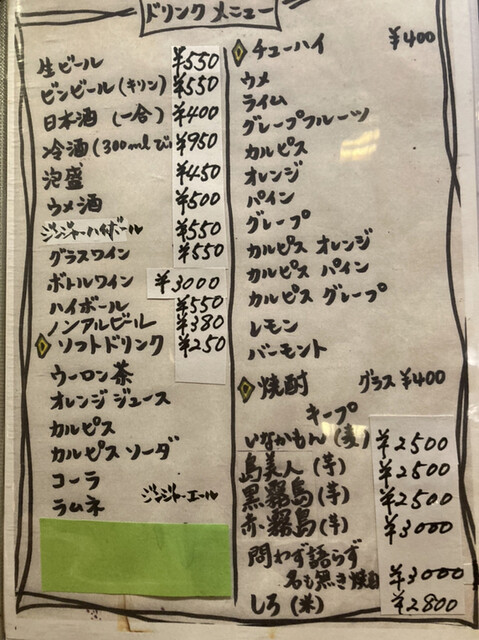 ドリンク メニュー
生ビール ¥550
ビンビール (キリン) ¥550
日本酒 (一合) ¥400
冷酒 (300ml ¥950
泡盛 ¥450
ウメ酒 ¥500
ジンジャーハイボール ¥550
グラスワイン ¥550
ボトルワイン ¥3000
ハイボール ¥550
ノンアルビール ¥380
ソフトドリンク ¥250
ウーロン茶
オレンジジュース
カルピス
カルピスソーダ
コーラ
ジンジャーエール
ラムネ
チューハイ ¥400
ウメ
ライム
グレープフルーツ
カルピス
オレンジ
パイン
グレープ
カルピス オレンジ
カルピス パイン
カルピス グレープ
レモン
バーモント
焼酎 グラス ¥400
キープ
いなかもん (麦) ¥2500
島美人 (芋) ¥2500
黒霧島 (芋) ¥2500
赤霧島 (芋) ¥3000
問わず語らず
名も無き焼酎 ¥3000
しろ (米) ¥2800